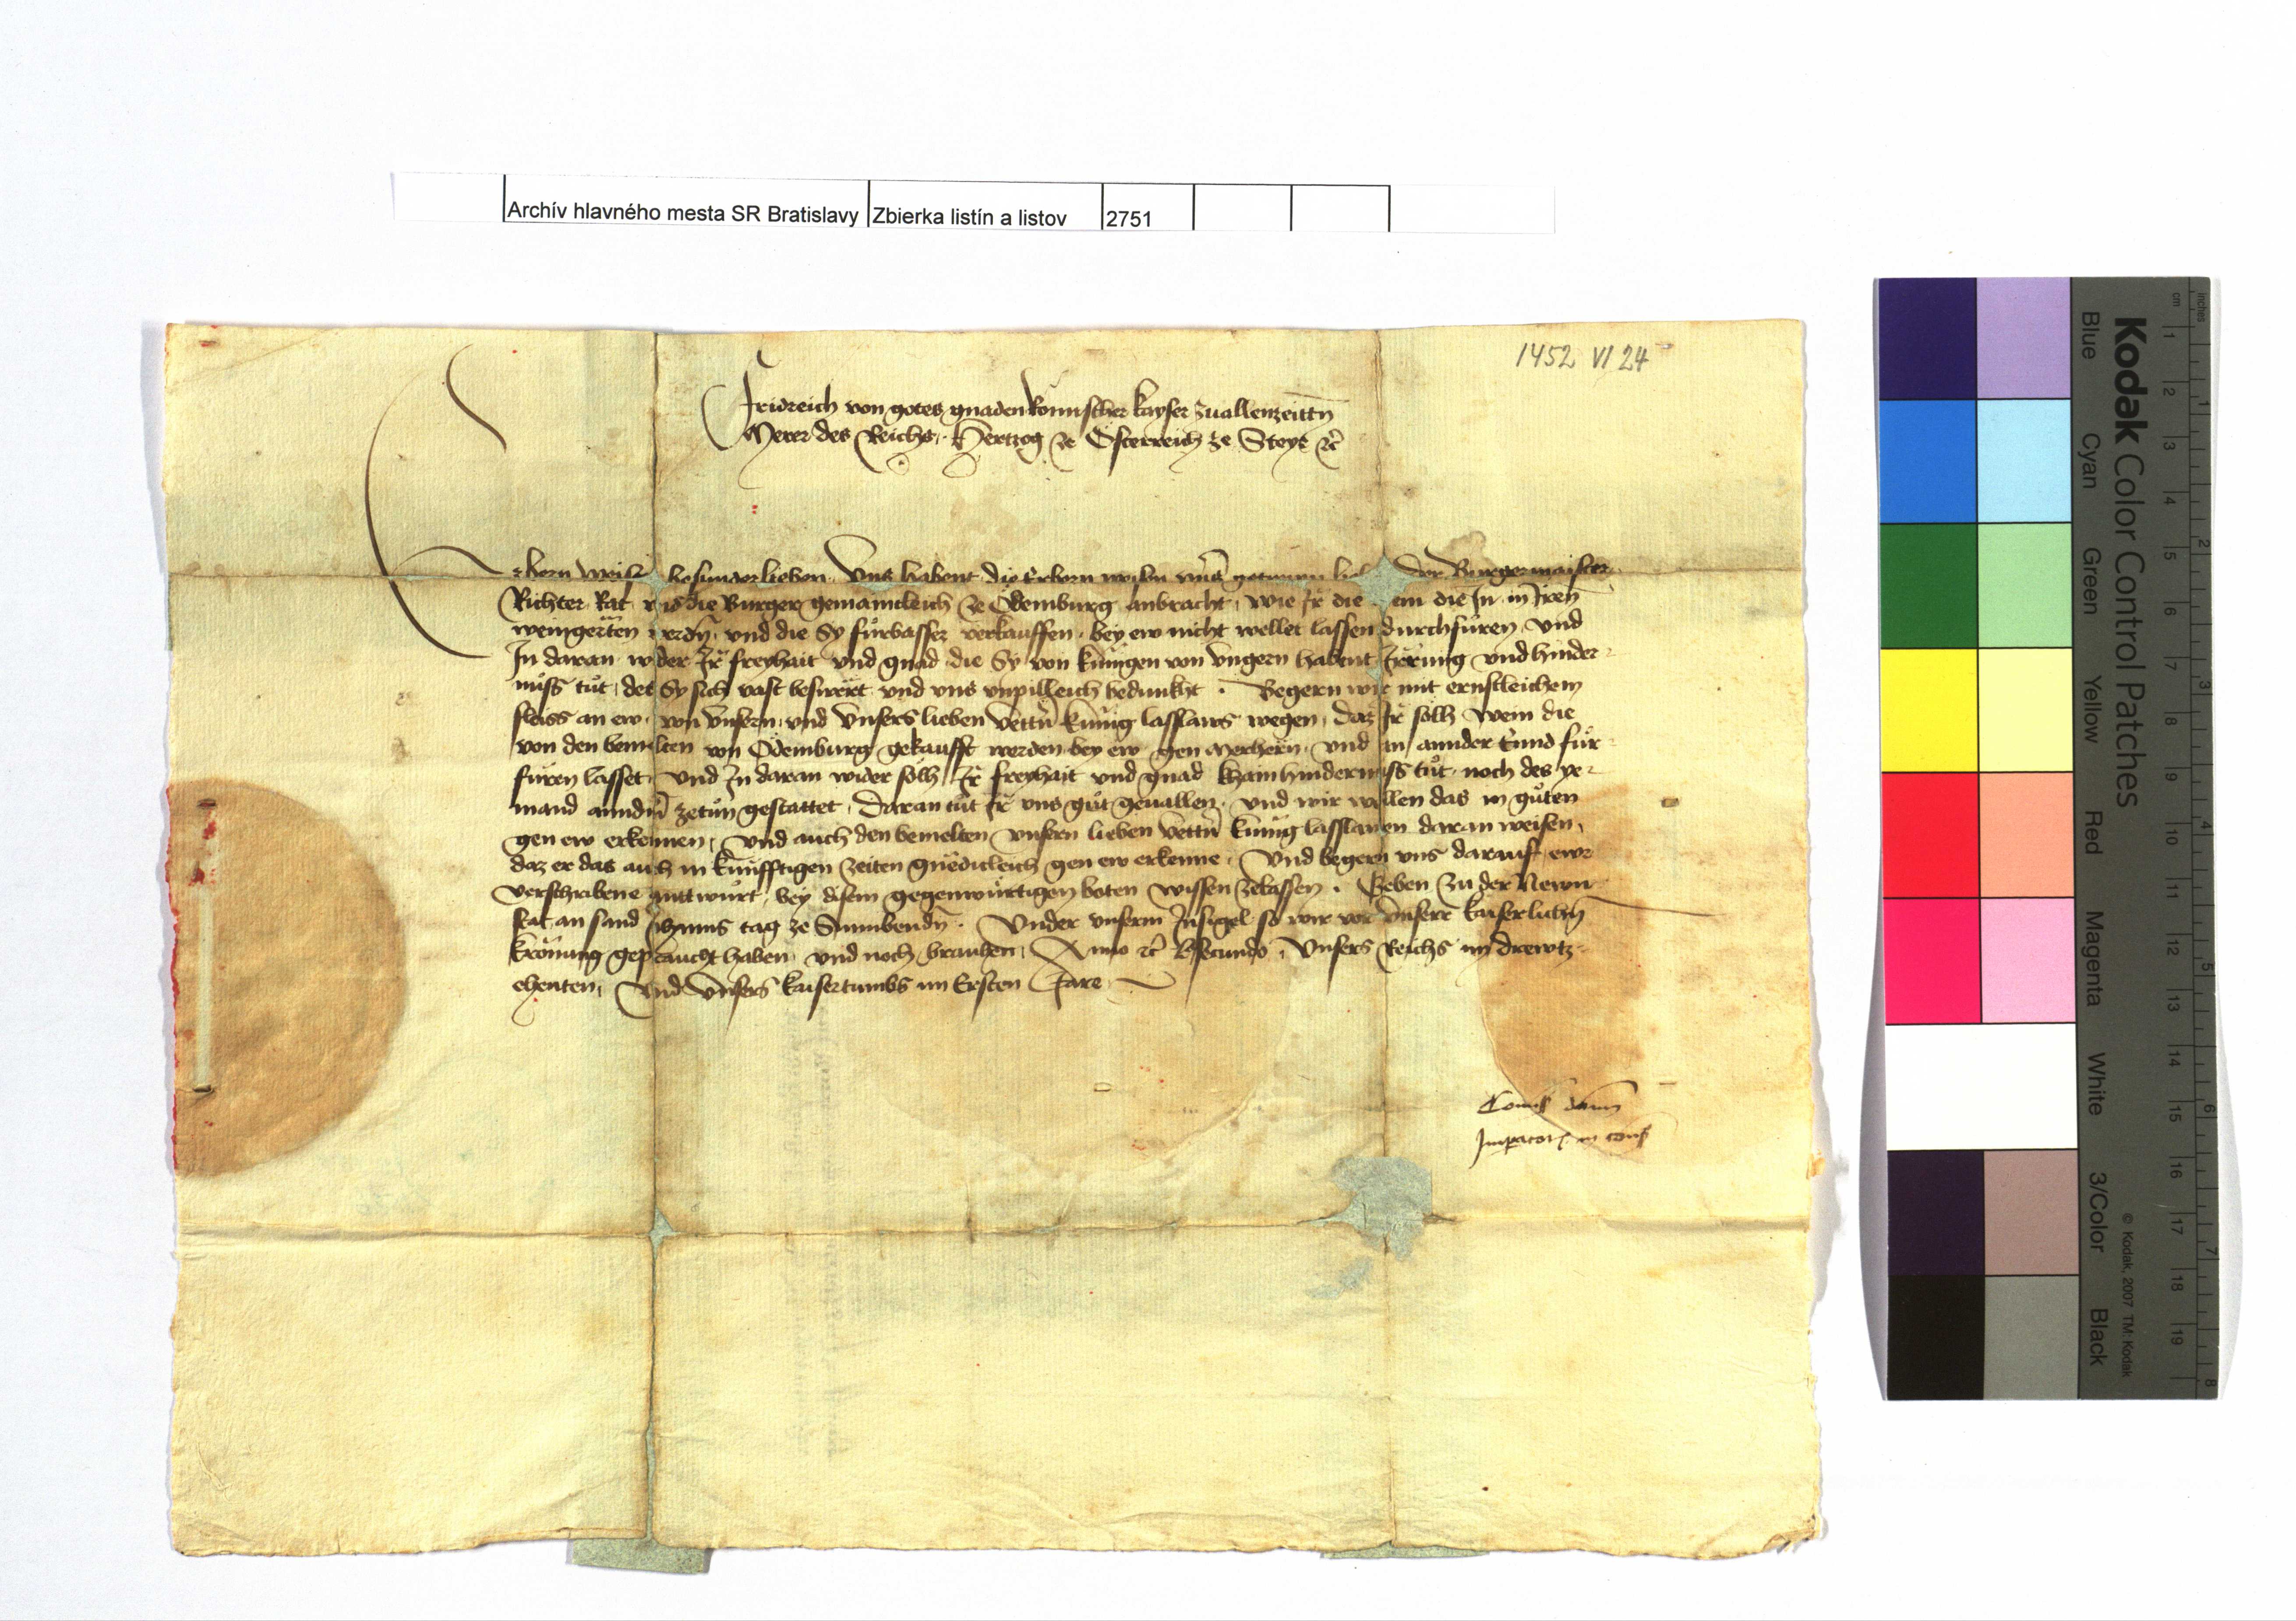 Archív hlavného mesta SR Bratislavy Zbierka listín a listov 2751
1452 VI 24
Fridreich von gotes gnaden Romischer kayser zuallenzeittn
Merer des Reichs, Hertzog ze Österreich ze Steyr etc
Erbern weisen besunderlieben. Uns habent die Erbern weisen unser getrewn der Burgermaister
Richter Rat und die Burger gemainclich ze Ödemburg anbracht, wie Ir die wein die In in Iren
weingerten werdn, und die Sy fürbasser verkauffen, bey ew nicht wellet lassen durchfüren, und
In daran wider Ir freyhait und gnad die Sy von künigen von Ungern habent Irrung und hinder
nüss tüt, des Sy sich vast beswert und uns unpilleich bedunkht. Begern wir mit ernstleichem
fleiss an ew, von unsern, und unsers lieben vettern künig lasslaws wegen, daz Ir solh wein die
von den bemelten von Ödemburg gekaufft werden bey ew gen Merhern, und in annder Ennd für
füren lasset, und In daran wider solh Ir freyhait und gnad khain hindernuss tüt, noch des ye
mand anndern zetün gestattet, Daran tüt Ir uns güt geuallen, und wir wellen das in güten
gen ew erkennen, und auch den bemelten unsern lieben vettern künig lasslawen daran weisen,
daz er das auch in künfftigen zeiten gnedicleich gen ew erkenne, Und begern uns darauf ewr
verschribene anttwurt, bey disem gegenwürtigen boten wissen zelassen. Geben zu der Newn
stat an sand Johanns tag ze Sunnbenden. Under unserm Insigel so wir vor unserr kaiserlichn
krönung gepraucht haben, und noch brauhen, Anno etc Lsecundo, Unsers Reichs im drewtz
ehenten, Und unsers kaisertumbs im Ersten Jare
Comissio domini
Imperatoris in consilio
Kodak Color Control Patches
Blue Cyan Green Yellow Red Magenta White 3/Color Black
© Kodak, 2007 TM: Kodak
inches 1 2 3 4 5 6 7 8
cm 1 2 3 4 5 6 7 8 9 10 11 12 13 14 15 16 17 18 19